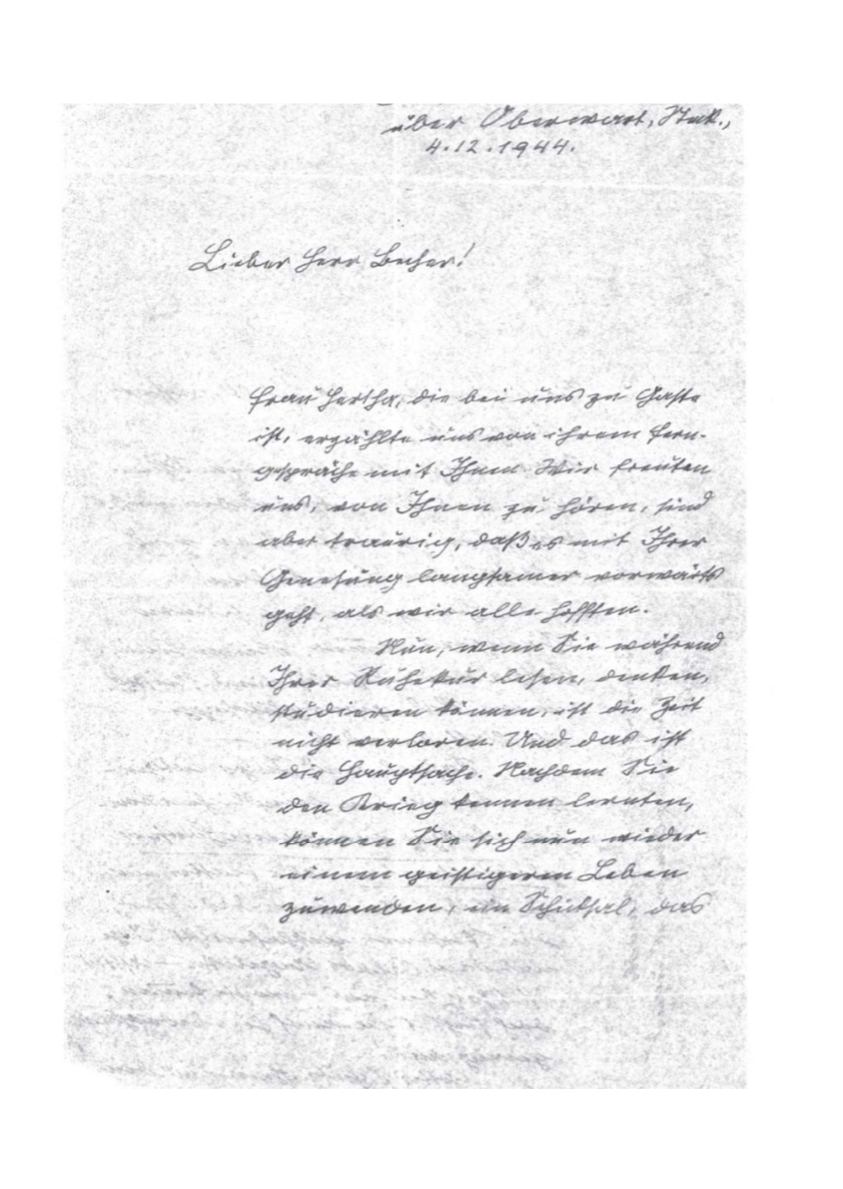 über Oberwart, Stmk.,
4.12.1944.
Lieber Herr Becher!
Frau Hertha, die bei uns zu Gaste
ist, erzählte uns von ihrem Fern-
gespräche mit Ihnen. Wir freuten
uns, von Ihnen zu hören, sind
aber traurig, daß es mit Ihrer
Genesung langsamer vorwärts
geht, als wir alle hofften.
Nun, wenn Sie während
Ihrer Ruhekur lesen, denken,
studieren können, ist die Zeit
nicht verloren. Und das ist
die Hauptsache. Nachdem Sie
den Krieg kennen lernten,
können Sie sich nun wieder
einem geistigeren Leben
zuwenden, ein Schicksal, das